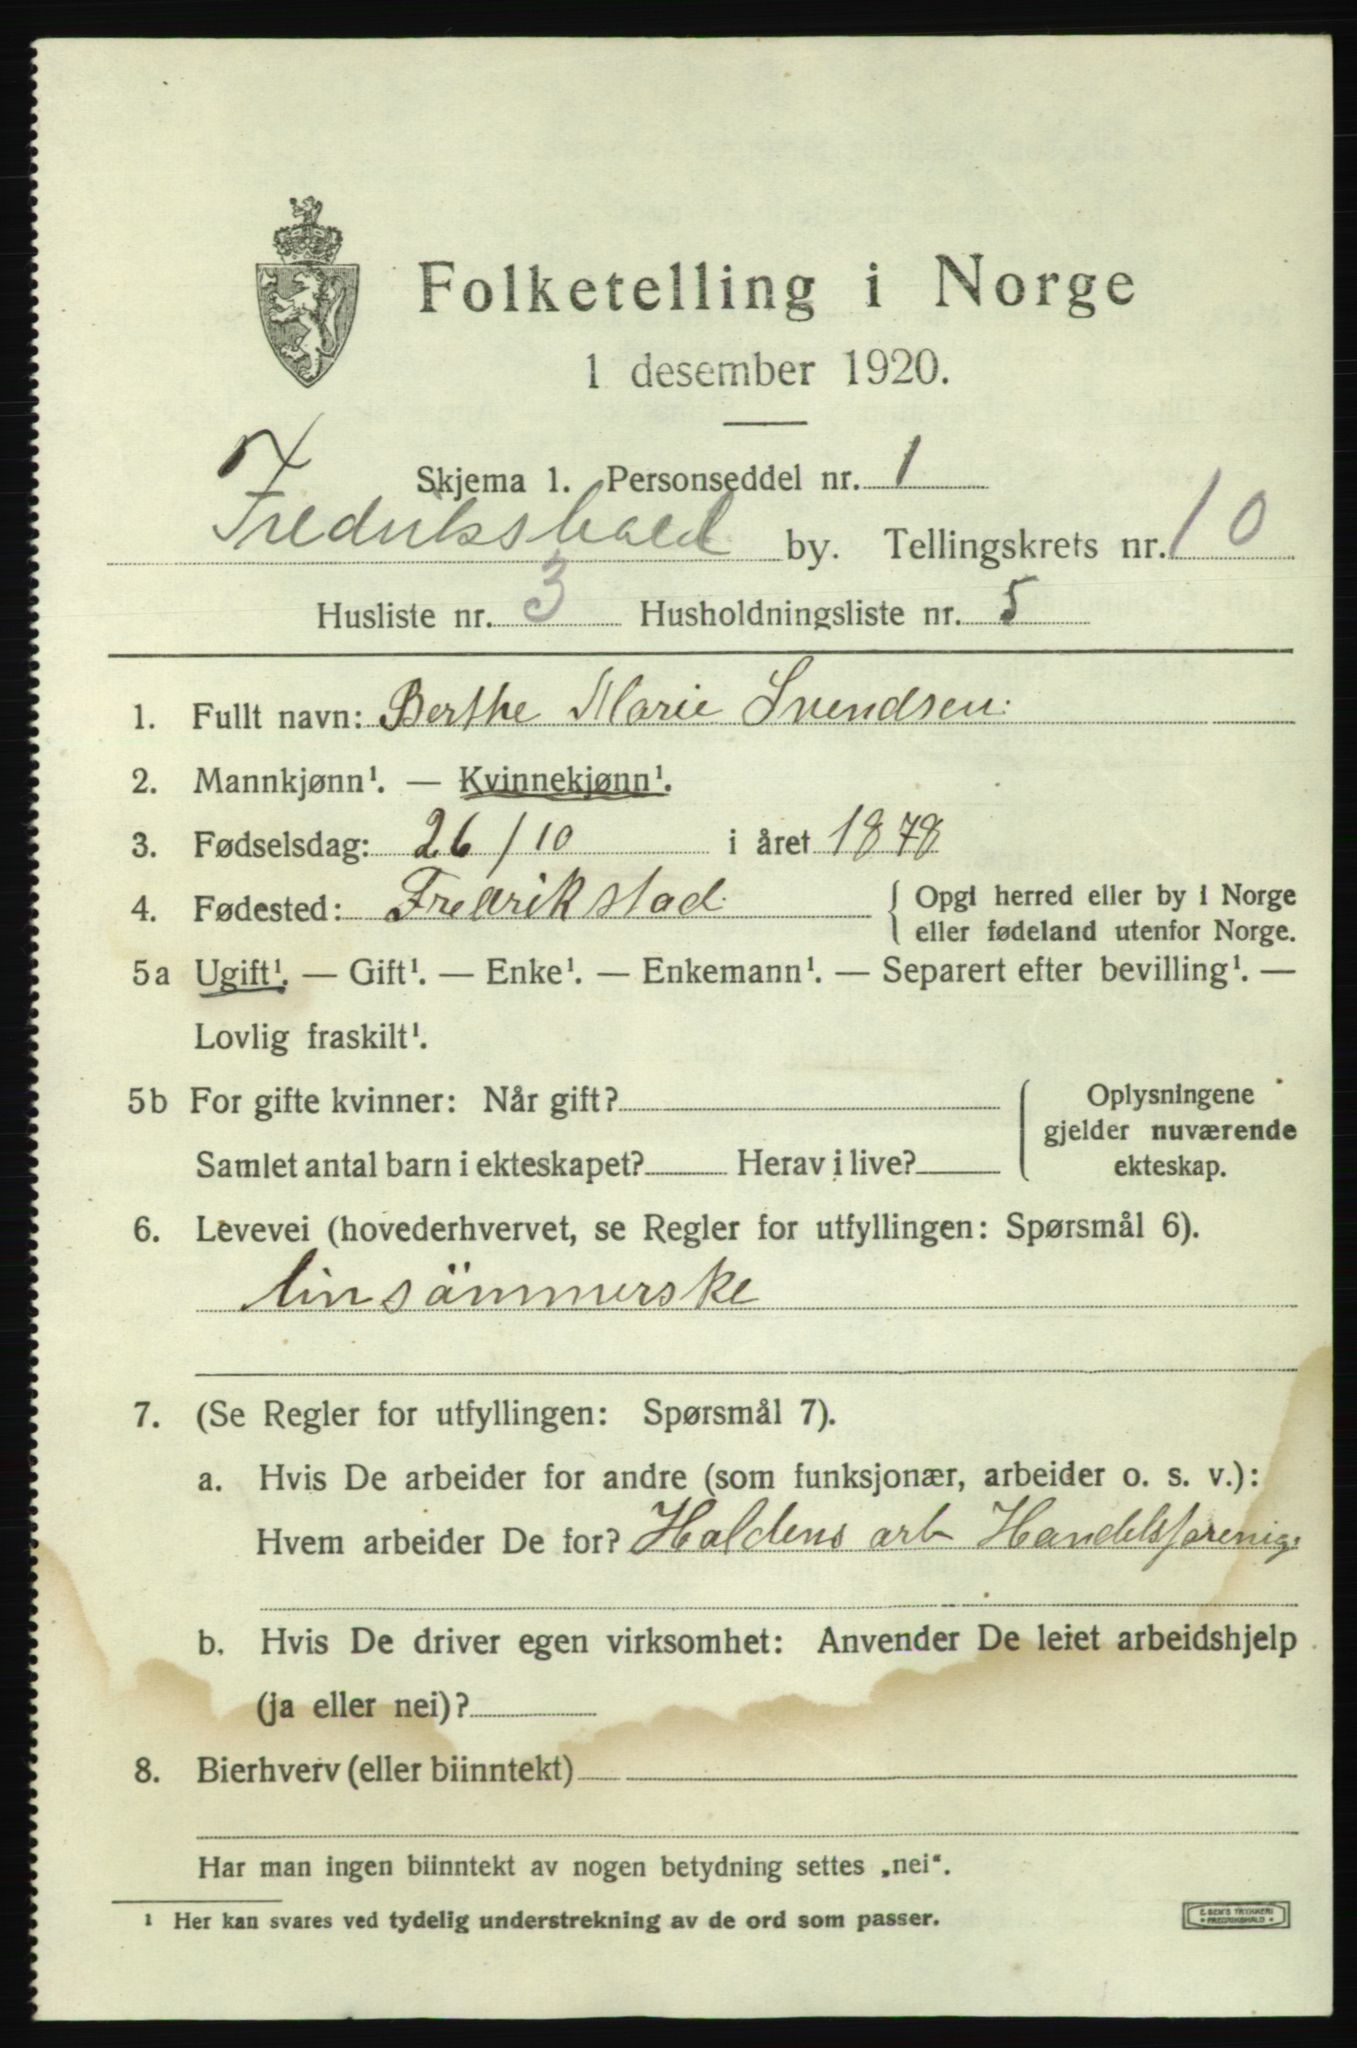 Folketelling i Norge
1 desember 1920.
Skjema 1. Personseddel nr. 1
Fredrikshald by. Tellingskrets nr. 10
Husliste nr. 3 Husholdningsliste nr. 5
1. Fullt navn: Berthe Marie Svendsen.
2. Mannkjønn¹. — Kvinnekjønn¹.
3. Fødselsdag: 26/10 i året 1878
4. Fødested: Fredrikstad { Opgi herred eller by i Norge
eller fødeland utenfor Norge.
5a Ugift¹. — Gift¹. — Enke¹. — Enkemann¹. — Separert efter bevilling¹. —
Lovlig fraskilt¹.
5b For gifte kvinner: Når gift? { Oplysningene
gjelder nuværende
Samlet antal barn i ekteskapet? Herav i live? ekteskap.
6. Levevei (hovederhvervet, se Regler for utfyllingen: Spørsmål 6).
linsömmerske
7. (Se Regler for utfyllingen: Spørsmål 7).
a. Hvis De arbeider for andre (som funksjonær, arbeider o. s. v.):
Hvem arbeider De for? Haldens arb Handelsforenig.
b. Hvis De driver egen virksomhet: Anvender De leiet arbeidshjelp
(ja eller nei)?
8. Bierhverv (eller biinntekt)
Har man ingen biinntekt av nogen betydning settes „nei“.
¹ Her kan svares ved tydelig understrekning av de ord som passer.
TRYKKERI
FREDRIKSHALD